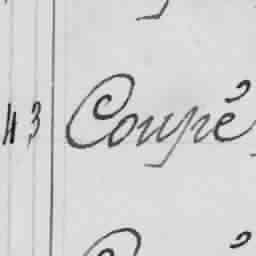 43 Coupé